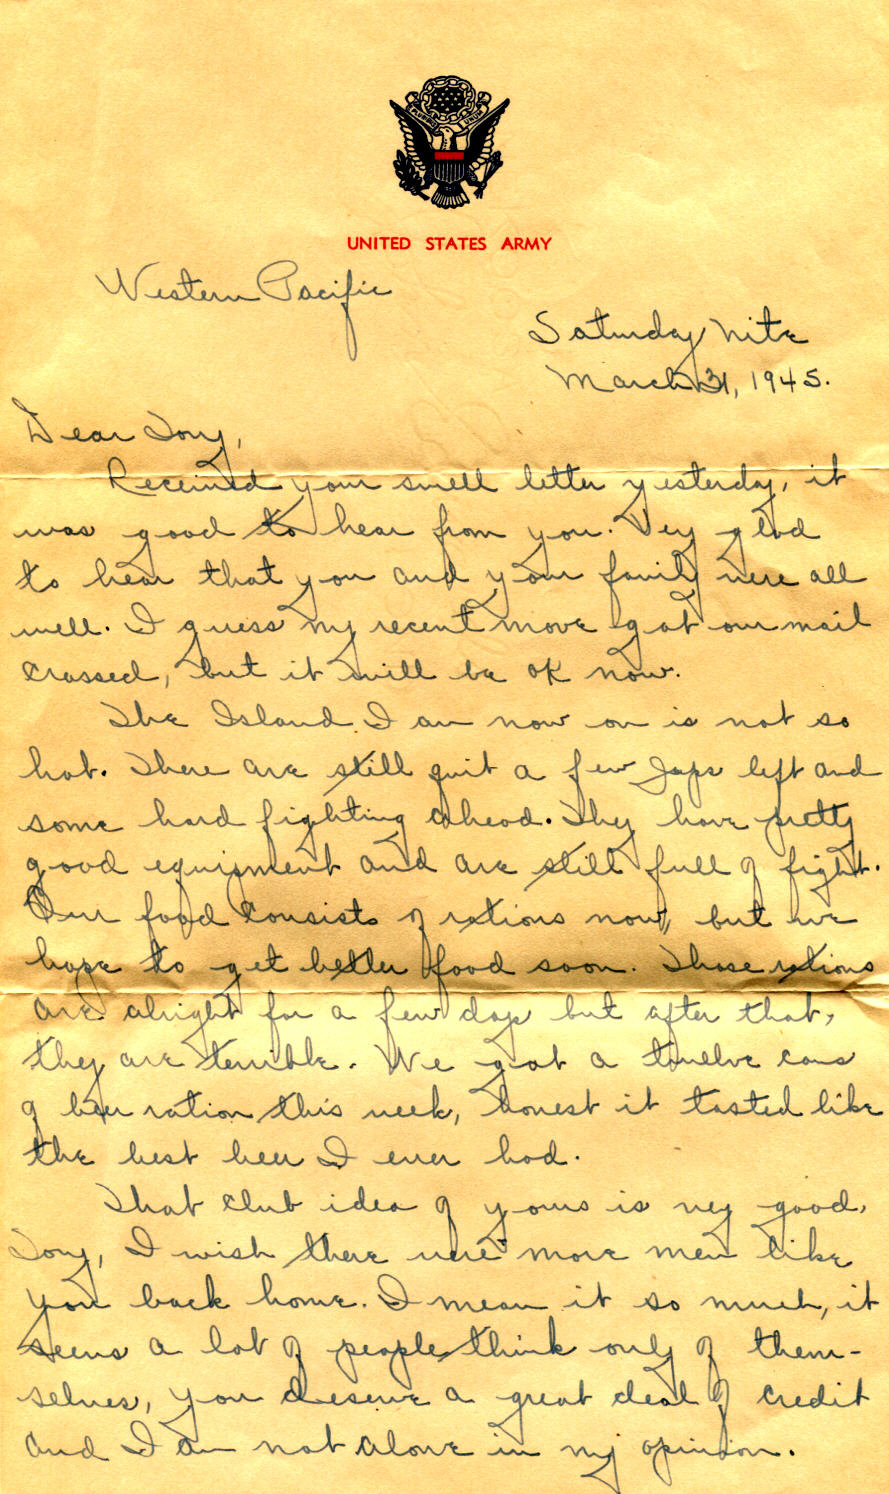 E PLURIBUS UNUM
UNITED STATES ARMY
Western Pacific
Saturday Nite
March 31, 1945.
Dear Tony,
Received your swell letter yesterday, it
was good to hear from you. Very glad
to hear that you and your family were all
well. I guess my recent move got our mail
crossed, but it will be OK now.
The Island I am now on is not so
hot. There are still quit a few Japs left and
some hard fighting ahead. They have pretty
good equipment and are still full of fight.
Our food consists of rations now, but we
hope to get better food soon. Those rations
are alright for a few days but after that,
they are terrible. We got a twelve cans
of beer ration this week, honest it tasted like
the best beer I ever had.
That club idea of yours is very good,
Tony, I wish there were more men like
you back home. I mean it so much, it
seems a lot of people think only of them-
selves, you deserve a great deal of credit
and I am not alone in my opinion.